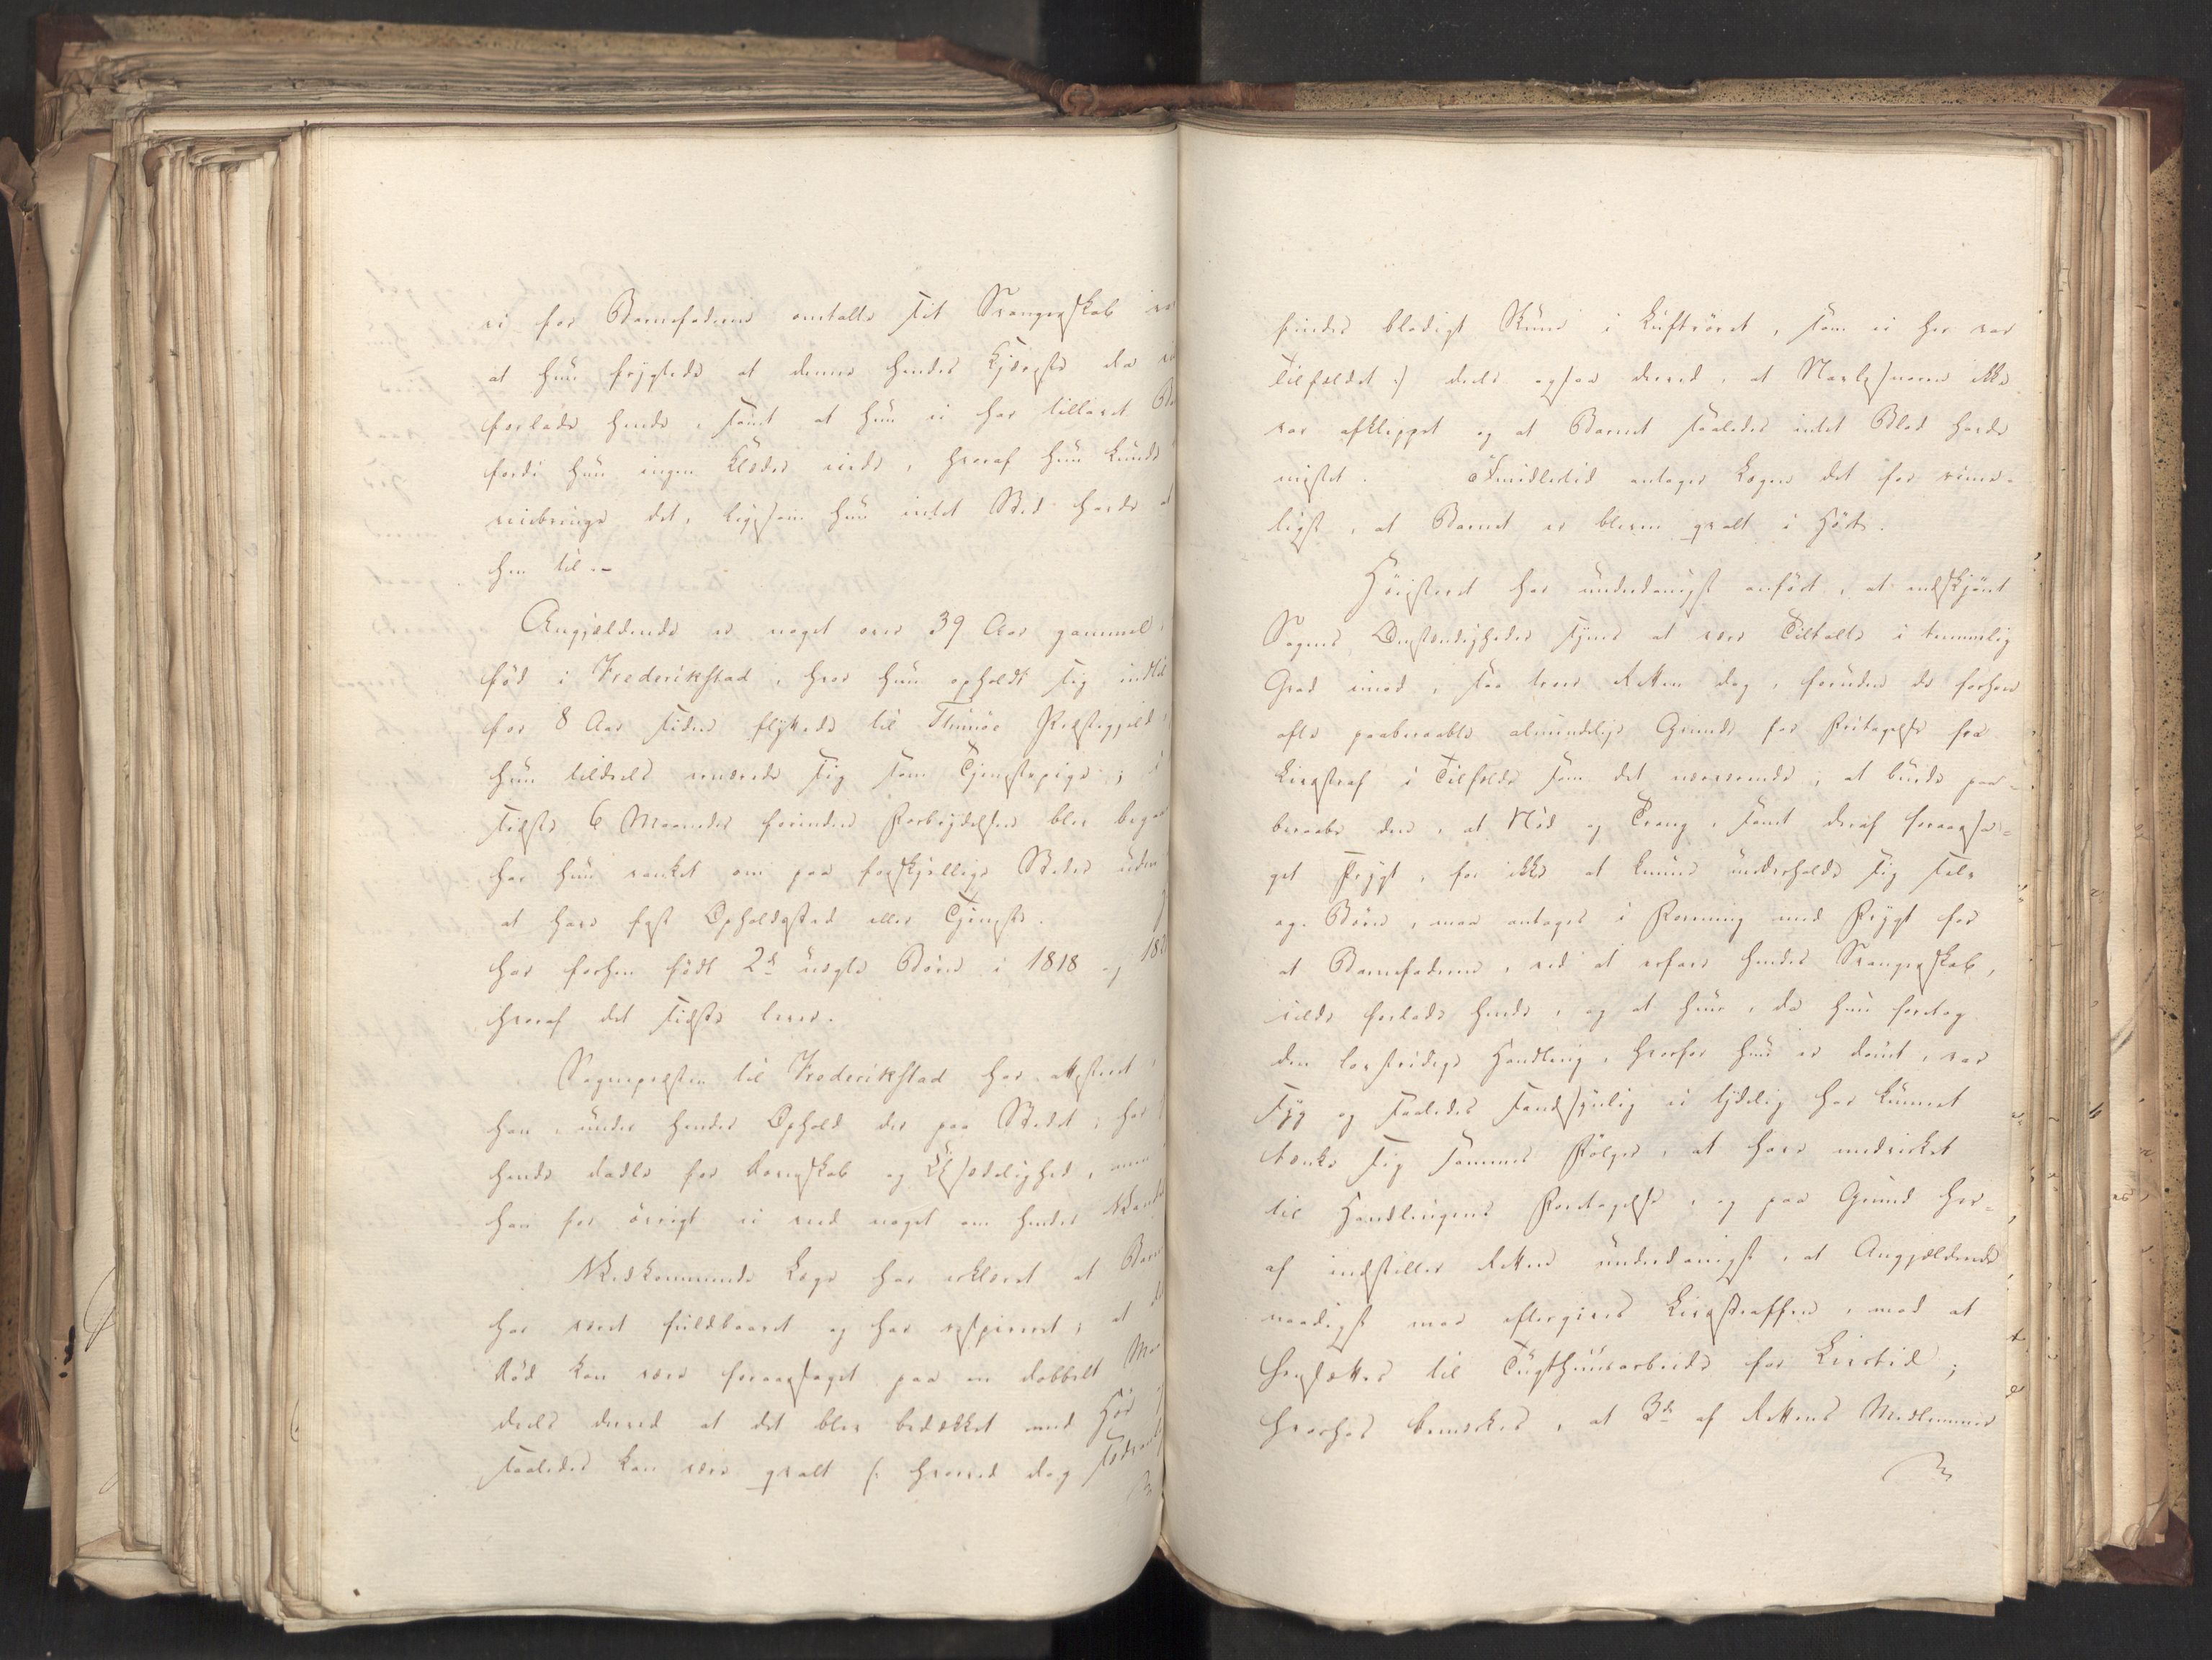 ei for Barnefaderen omtalte sit Svangerskab var
at hun frygtede at denne hendes Kjæreste da vilde
forlade hende, samt at hun ei har tillavet
fordi hun ingen Klæder eiede, hvoraf hun kunde
tilveiebringe det, ligesom hun intet Sted havde at
hen til.-
Angjældende er noget over 39 Aar gammel,
född i Frederikstad, hvor hun opholdt sig indtil
for 8 Aar siden flyttede til Thunöe Præstegjeld,
hun tildeels ernærede sig som Tjenestepige; i
sidste 6 Maaneder forinden Forbrydelsen blev begaaet
har hun vanket om paa forskjellige Steder uden
at have fast Opholdssted eller Tjeneste.
har forhen födt 2de uægte Börn i 1818 og 182
hvoraf det sidste lever.
Sognepræsten til Frederikstad har attesteret,
han, under hendes Ophold der paa Stedet, har
hende dadle for Løsagtighed og Usædelighed, men
han for övrigt ei veed noget om hendes Vandel
Vedkommende Læge har erklæret at Barnet
har været fuldbaaret og har respireret; at dets
Död kan være foraarsaget paa en dobbelt Maade
deels derved at det blev bedækket med Höe
saaledes kan være qvalt (: hvorved dog sædvanlig
findes blodigt Skum i Luftröret, som ei her var
Tilfældet :) deels ogsaa derved, at Navlesnoren ikke
var afklippet og at Barnet saaledes intet Blod havde
mistet. Imidlertid antager Lægen det for rime-
ligst, at Barnet er bleven qvalt i Höet.
Höiesteret har underdanigst anfört, at endskjönt
Sagens Omstændigheder synes at være Tiltalte i temmelig
Grad imod, saa troer Retten dog, foruden de forhen
ofte paaberaabte almindelige Grunde for Fritagelse fra
Livsstraf i Tilfælde som det nærværende, at burde paa-
beraabe den, at Nöd og Trang, samt deraf foraarsa-
get Frygt, for ikke at kunne underholde sig selv
og Börn, maa antages i Forening med Frygt for
at Barnefaderen, ved at erfare hendes Svangerskab,
vilde forlade hende, og at hun, da hun foretog
den lovstridige Handling, hvorfor hun er dömt, var
syg og saaledes sandsynlig ei tydelig har kunnet
tænke sig sammes Fölger, at have medvirket
til Handlingens Foretagelse, og paa Grund her-
af indstiller Retten underdanigst, at Angjældende
naadigst maa eftergives Livsstraffen, mod at
hensættes til Tugthuusarbeide for Livstid;
hvorhos bemærkes, at 3de af Rettens Medlemmer